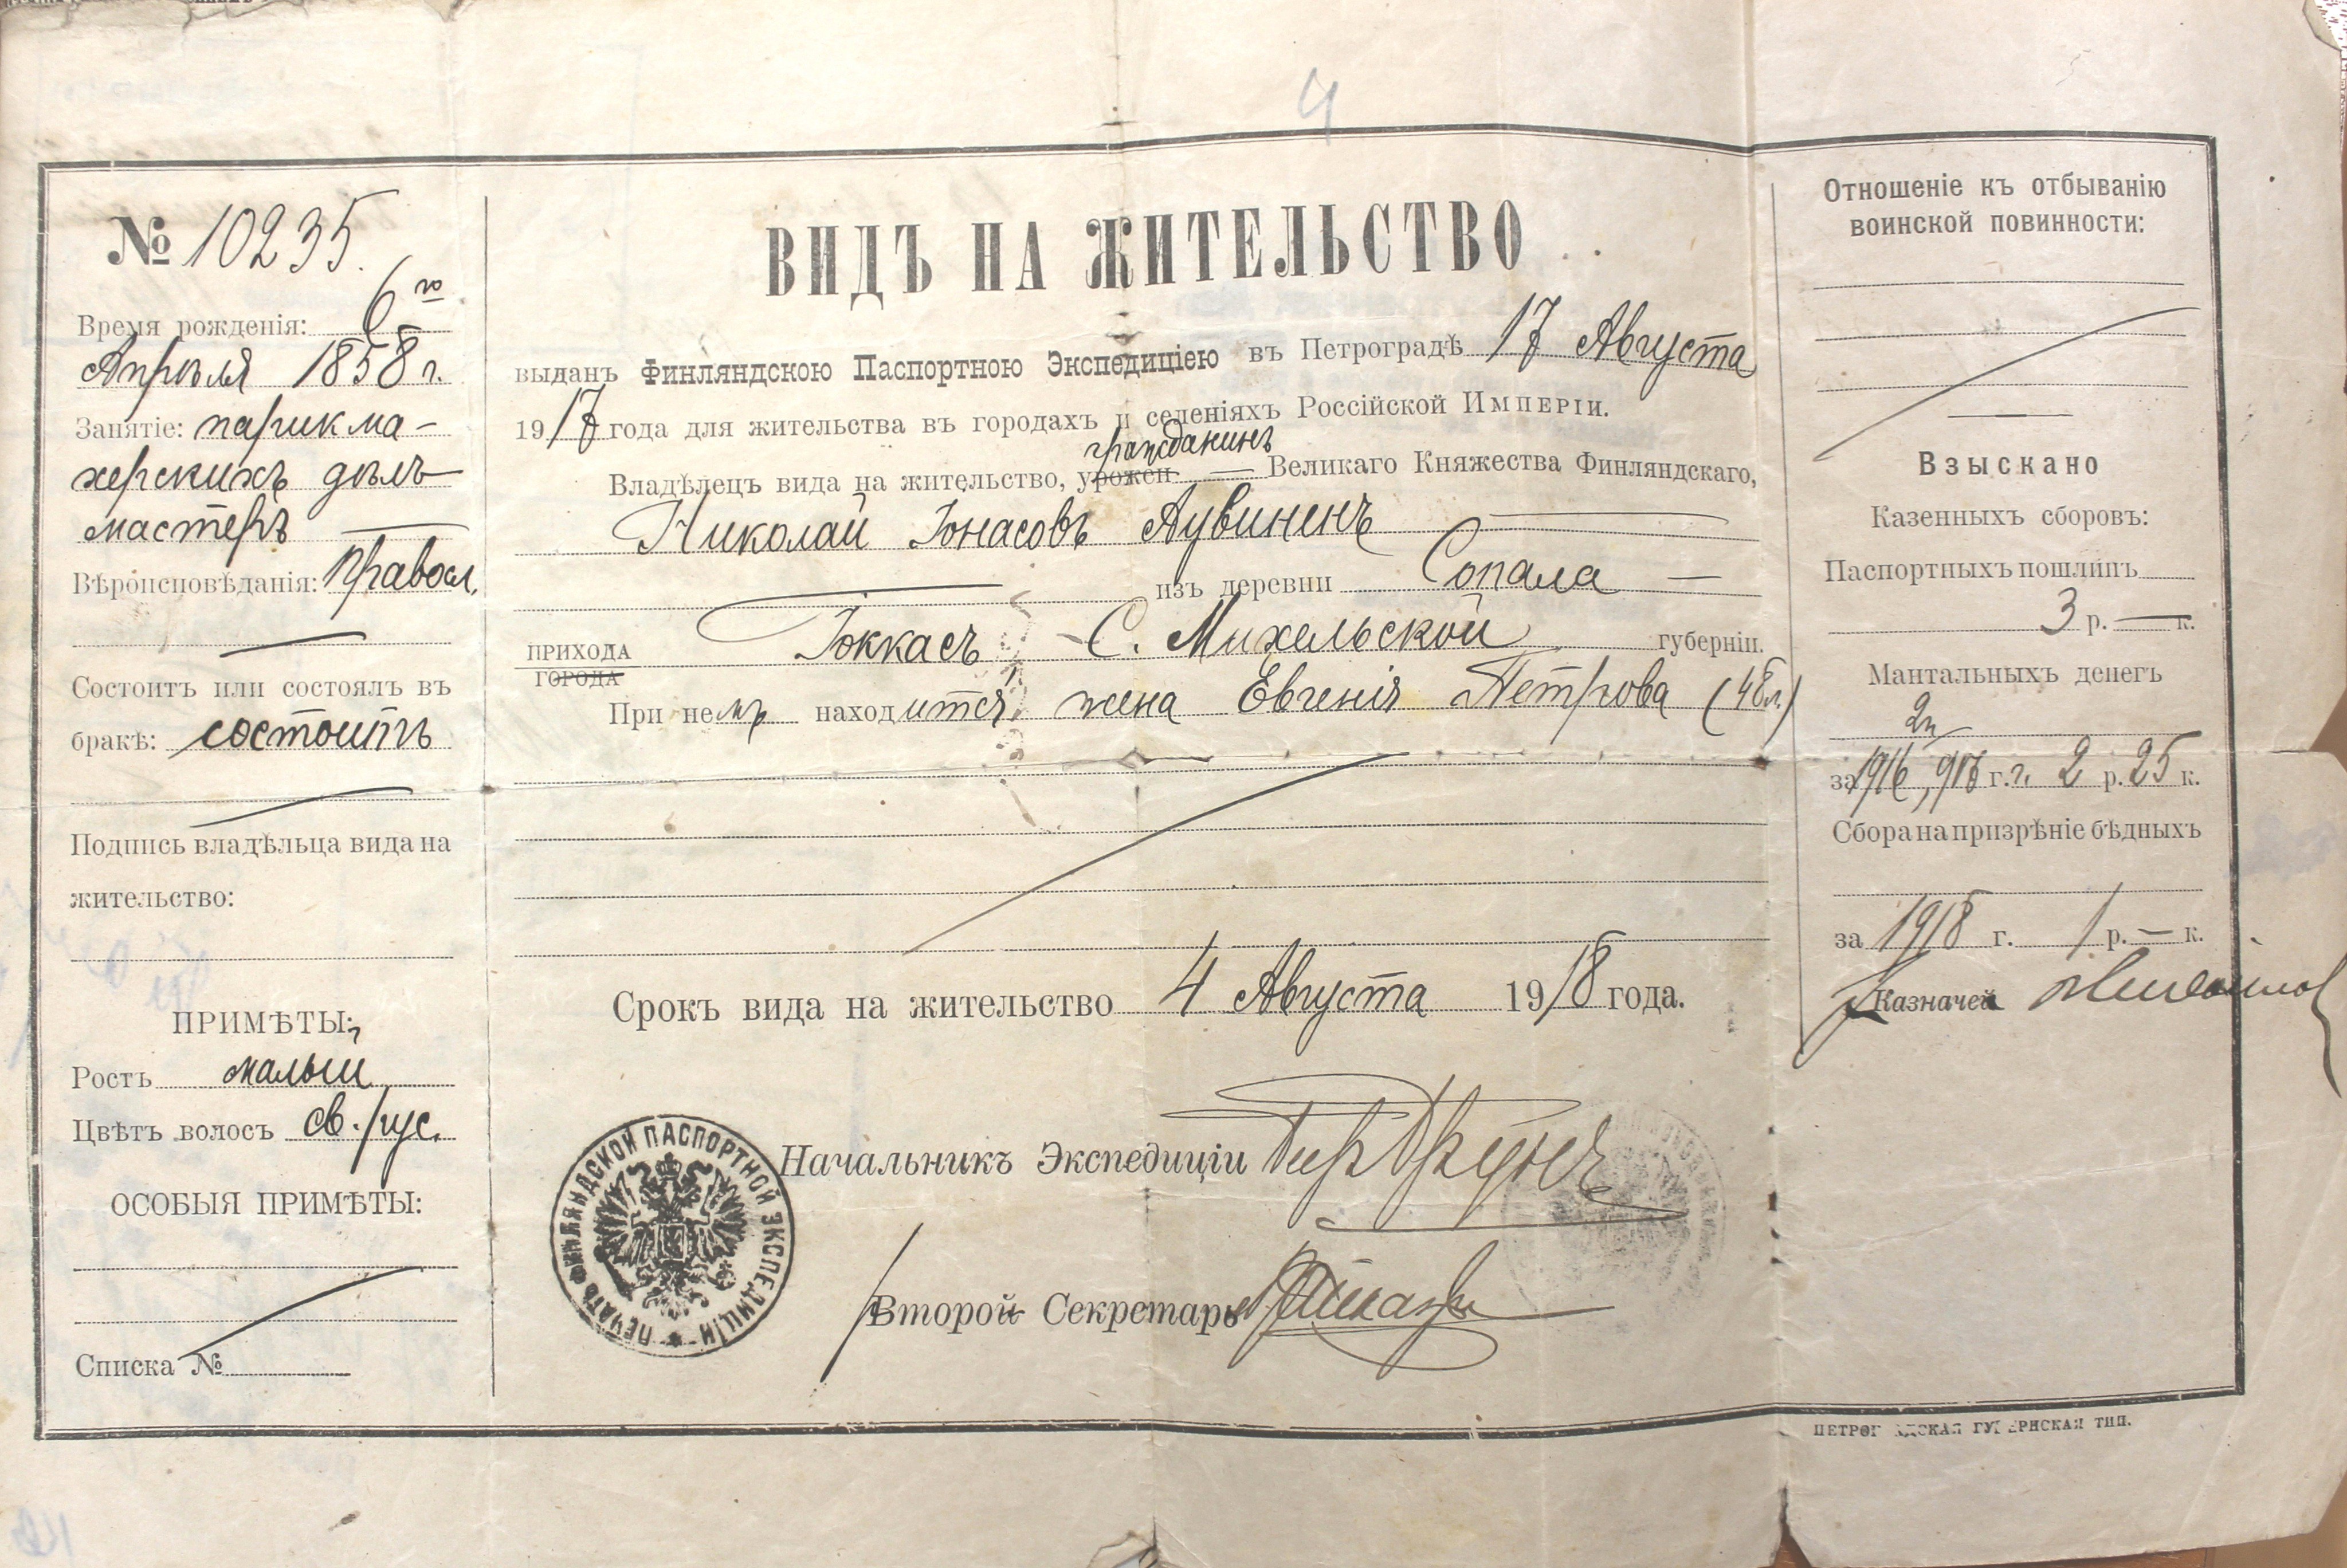 4
№ 10235.
Время рожденія: 6го
Апрѣля 1858 г.
Занятіе: парикма-
херскихъ дѣлъ
мастеръ
Вѣроисповѣданія: правосл.
Состоитъ или состоялъ въ
бракѣ: состоитъ
Подпись владѣльца вида на
жительство:
ПРИМѢТЫ:
Ростъ малый
Цвѣтъ волосъ св. рус.
ОСОБЫЯ ПРИМѢТЫ:
Списка №
ВИДЪ НА ЖИТЕЛЬСТВО
выданъ Финляндскою Паспортною Экспедиціею въ Петроградѣ 17 Августа
1917 года для жительства въ городахъ и селеніяхъ Россійской Имперіи.
гражданинъ
Владѣлецъ вида на жительство, урожен Великаго Княжества Финляндскаго,
Николай Іонасовъ Аувиненъ
изъ деревни Сопала
ПРИХОДА Іоккасъ С. Михельской губерніи.
ГОРОДА
При немъ находится жена Евгенія Петрова (48л.)
Срокъ вида на жительство 4 Августа 1918 года.
Начальникъ Экспедиціи
Второй Секретарь
ПЕЧАТЬ ФИНЛЯНДСКОЙ ПАСПОРТНОЙ ЭКСПЕДИЦІИ
Отношеніе къ отбыванію
воинской повинности:
Взыскано
Казенныхъ сборовъ:
Паспортныхъ пошлинъ
3 р. — к.
Мантальныхъ денегъ
за 1916, 918 г.г. 2 р. 25 к.
Сбора на призрѣніе бѣдныхъ
за 1918 г. 1 р. — к.
Казначей
ПЕТРОГРАДСКАЯ ГУБЕРНСКАЯ ТИП.